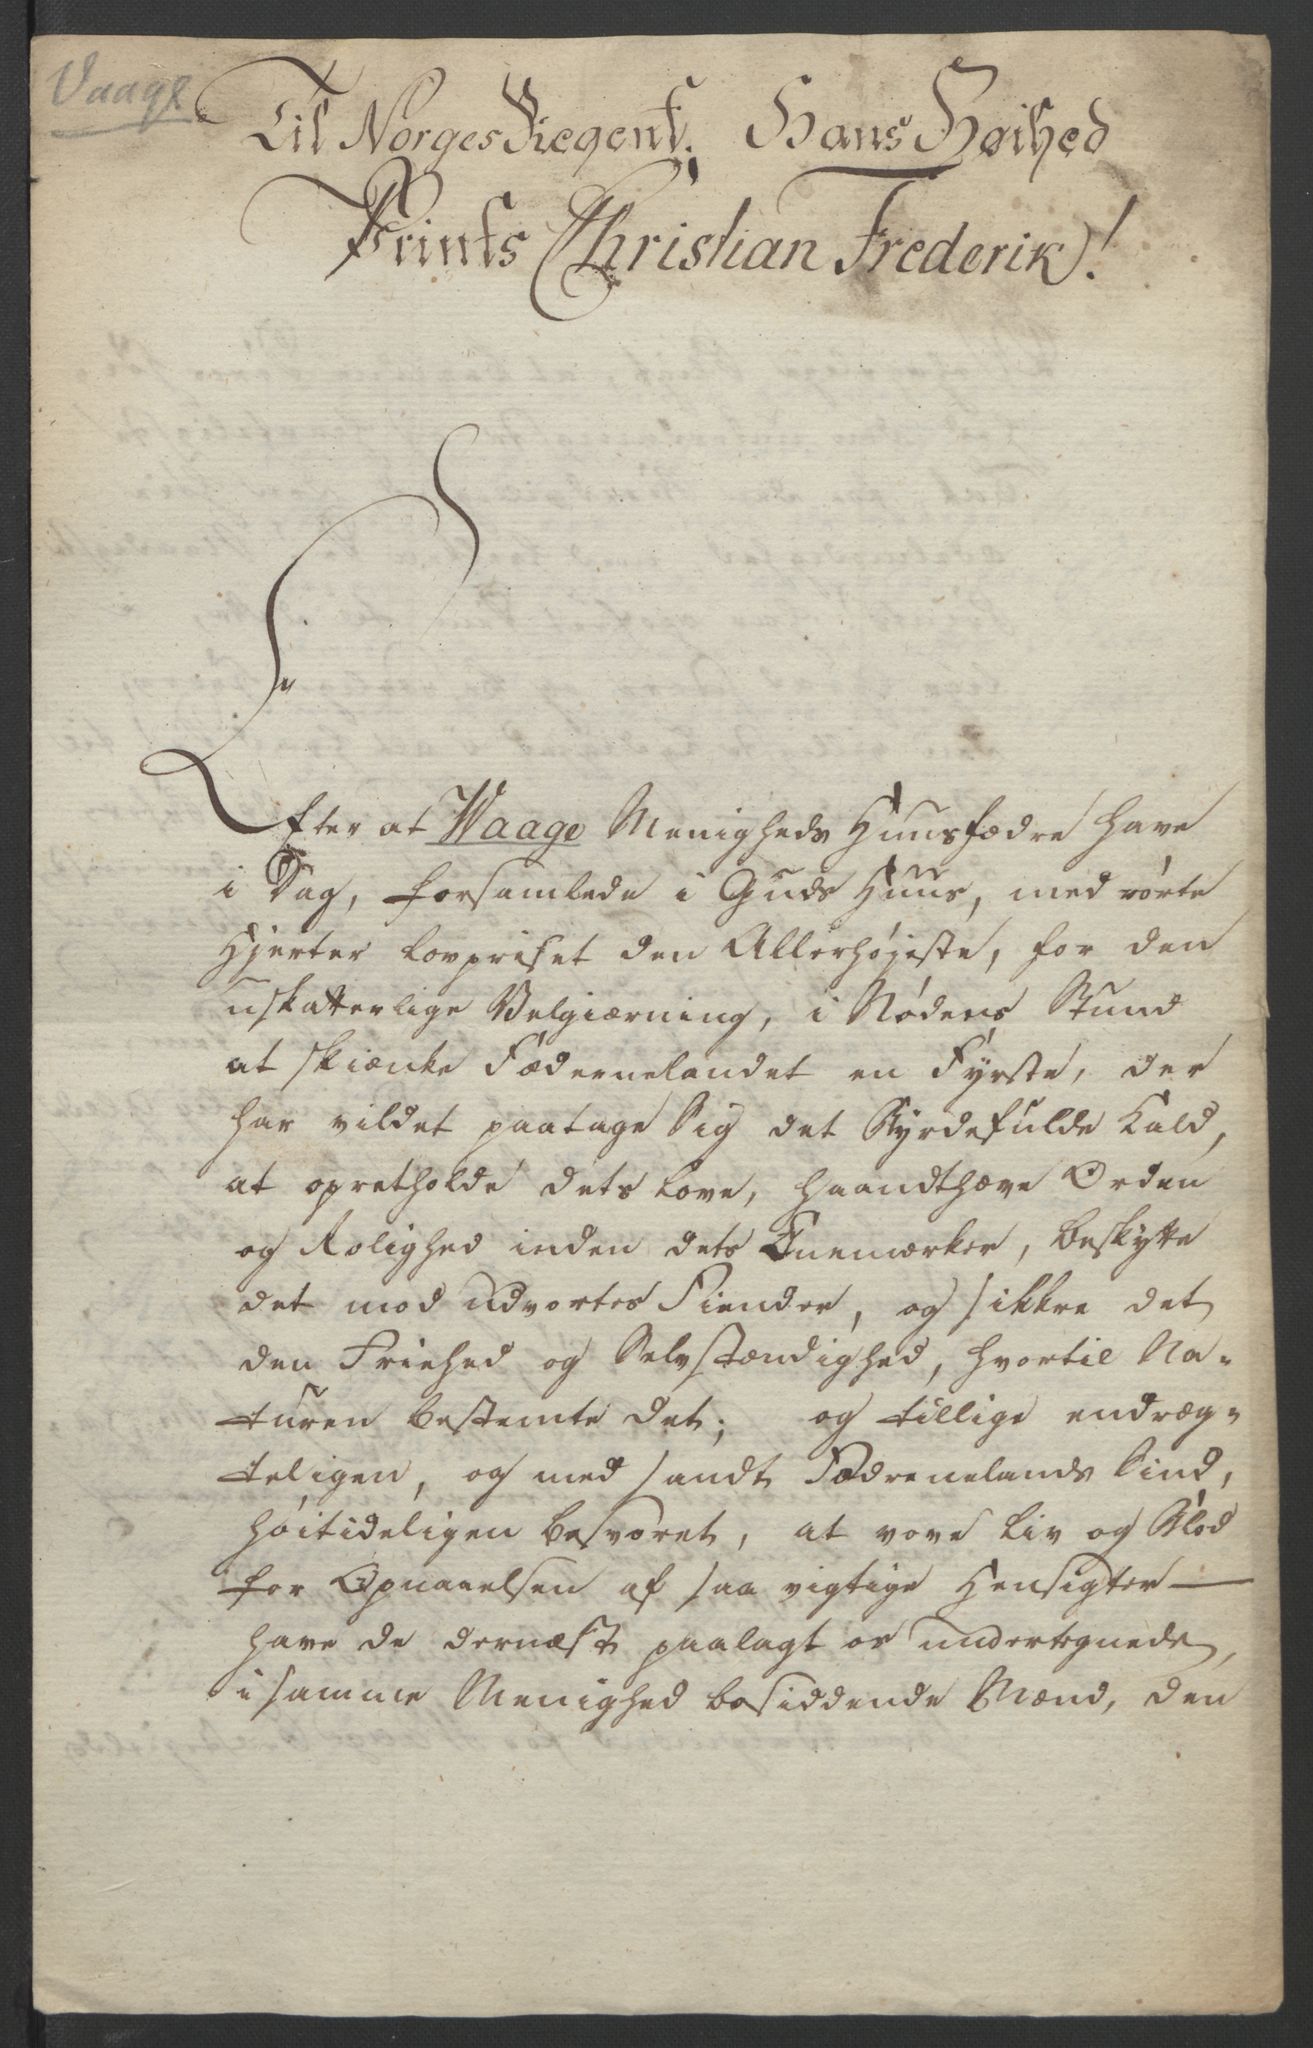 Vaage
Til Norges Regent, Hans Høihed
Prints Christian Frederik!
Efter at Waage Menigheds Huusfædre have
i Dag, forsamlede i Guds Huus, med rørte
Hjerter lovpriset den Allerhøjeste, for den
uskatterlige Velgiærning, i Nødens Stund
at skiænke Fædernelandet en Fyrste, der
har vildet paatage Sig det Byrdefulde Kald,
at opretholde dets Love, haandthæve Orden
og Rolighed inden dets Enemærker, beskytte
det mod udvortes Fiender, og sikkre det
den Friehed og Selvstændighed, hvortil Na-
turen bestemte det; og tillige endræg-
teligen, og med sandt Fædrenelands Sind,
høitideligen besvoret, at vove Liv og Blod
for Opnaaelsen af saa vigtige Hensigter —
have de dernæst paalagt os undertegnede,
i samme Menighed bosiddende Mænd, den